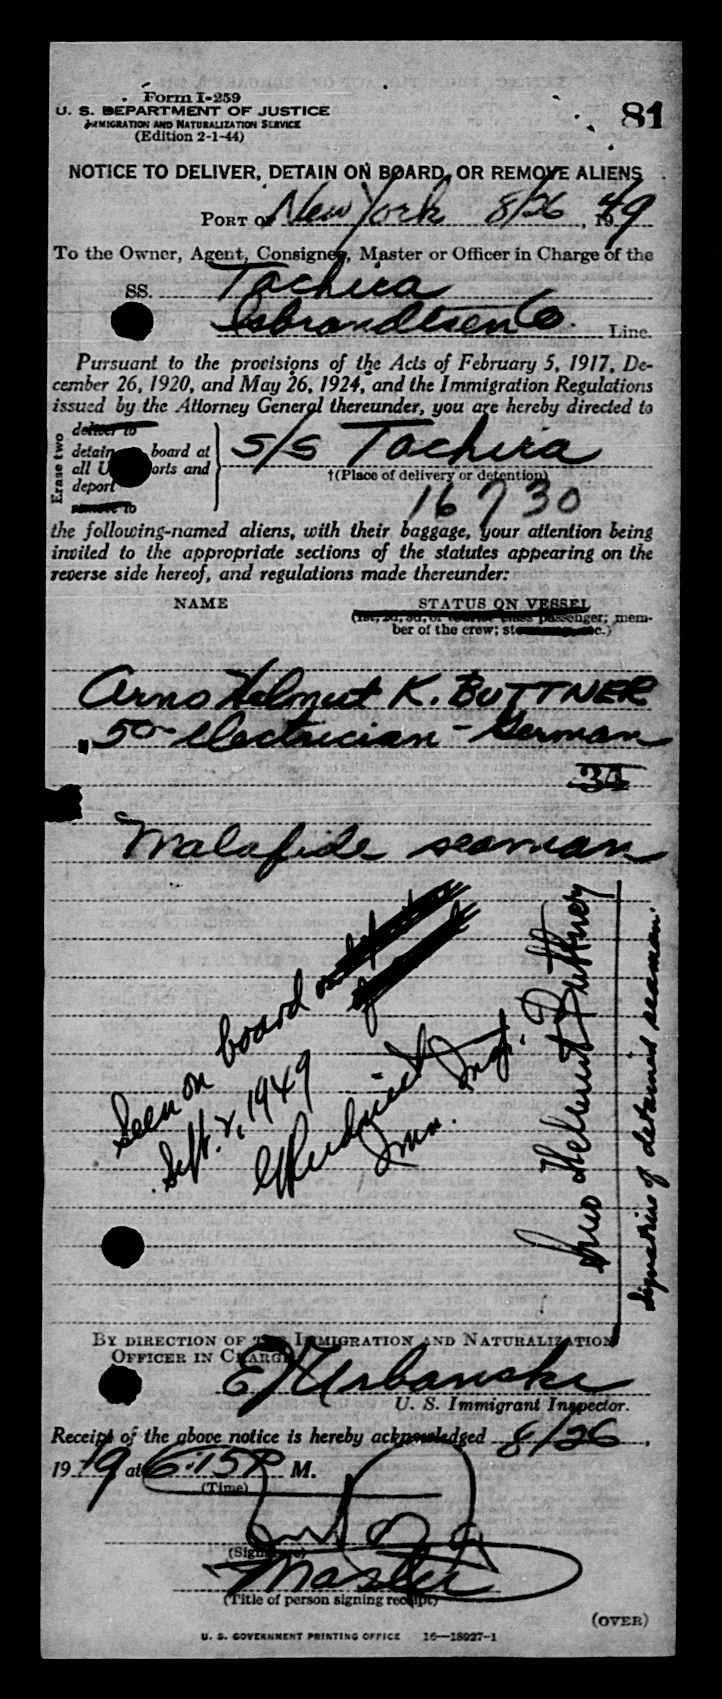 Form I-259
U. S. DEPARTMENT OF JUSTICE
IMMIGRATION AND NATURALIZATION SERVICE
(Edition 2-1-44)
81
NOTICE TO DELIVER, DETAIN ON BOARD, OR REMOVE ALIENS
PORT OF New York 8/26, 1949
To the Owner, Agent, Consignee, Master or Officer in Charge of the
SS. Tachira
Isbrandtsen Co. Line.
Pursuant to the provisions of the Acts of February 5, 1917, De-
cember 26, 1920, and May 26, 1924, and the Immigration Regulations
issued by the Attorney General thereunder, you are hereby directed to
Erase two
deliver to
detain board at
all U ports and
deport
remove to
S/S Tachira
†(Place of delivery or detention)
16730
the following-named aliens, with their baggage, your attention being
invited to the appropriate sections of the statutes appearing on the
reverse side hereof, and regulations made thereunder:
NAME STATUS ON VESSEL
(1st, 2d, 3d, or tourist class passenger; mem-
ber of the crew; etc.)
Arno Helmut K. BUTTNER
50 electrician - German
34
Malafide seaman
Seen on board on
Sept. 2, 1949
Imm. Insp.
Arno Helmut Buttner
Signature of detained seaman.
BY DIRECTION OF THE IMMIGRATION AND NATURALIZATION
OFFICER IN CHARGE
E J Urbanski
U. S. Immigrant Inspector.
Receipt of the above notice is hereby acknowledged 8/26,
1949 at 6:15 P M.
(Time)
(Signature)
Master
(Title of person signing receipt)
(OVER)
U. S. GOVERNMENT PRINTING OFFICE 16—18927-1